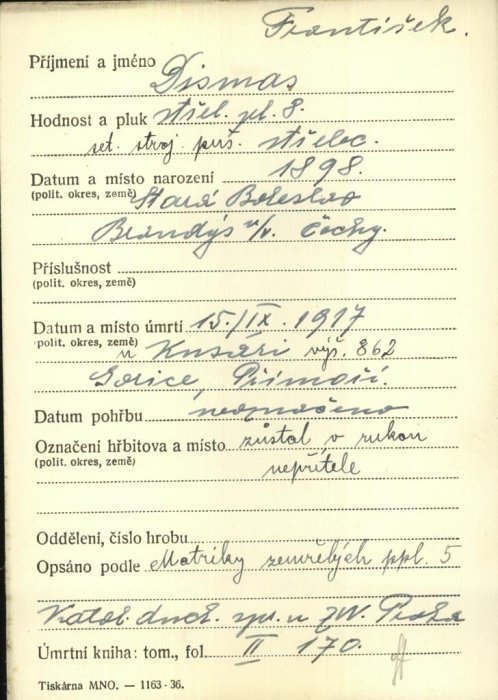 František.
Příjmení a jméno Dismas
Hodnost a pluk střel. pl. 8.
set. stroj. puš. střelec.
Datum a místo narození 1898.
(polit. okres, země) Stará Boleslav
Brandýs n/L. Čechy.
Příslušnost
(polit. okres, země)
Datum a místo úmrtí 15./IX. 1917
(polit. okres, země) u výš. 862
Gorice, Přímoří.
Datum pohřbu neoznačeno
Označení hřbitova a místo zůstal v rukou
(polit. okres, země) nepřítele
Oddělení, číslo hrobu
Opsáno podle Matriky zemřelých ppl. 5
Katol. duch. spr. u ZVV. Praha
Úmrtní kniha: tom., fol. II 170.
Tiskárna MNO. — 1163-36.